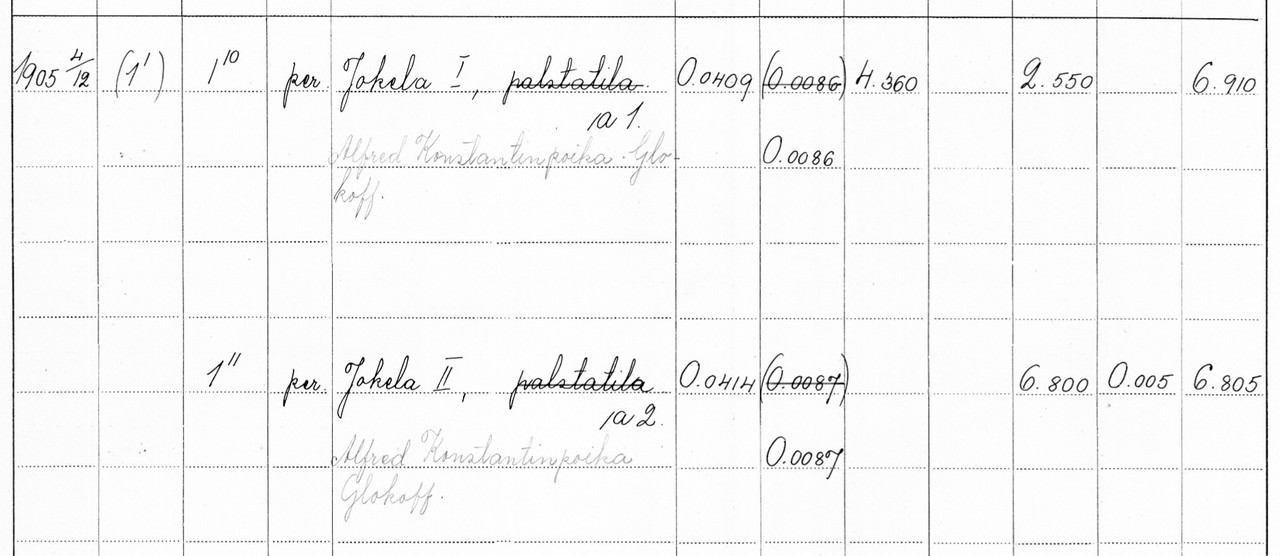 1905 4/12 (1') 1¹⁰ per. Jokela I, palstatila 0.0409 (0.0086) 4.360 2.550 6.910
a 1.
Alfred Konstantinpoika Glo- 0.0086
koff.
1¹¹ per. Jokela II, palstatila 0.0414 (0.0087) 6.800 0.005 6.805
a 2.
Alfred Konstantinpoika 0.0087
Glokoff.